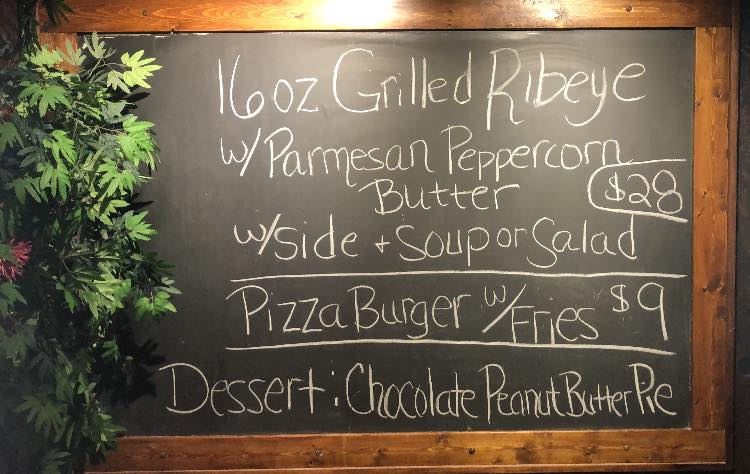 16oz Grilled Ribeye
w/Parmesan Peppercorn
Butter $28
w/side + Soup or Salad
Pizza Burger w/Fries $9
Dessert: Chocolate Peanut Butter Pie